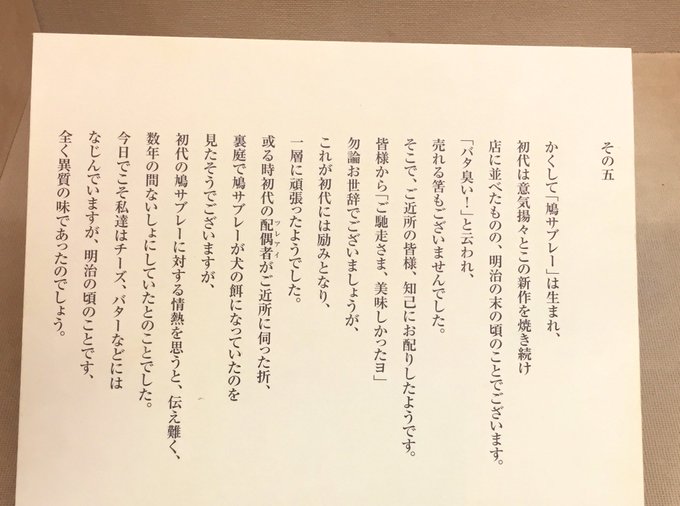 その五
かくして「鳩サブレー」は生まれ、
初代は意気揚々とこの新作を焼き続け
店に並べたものの、明治の末の頃のことでございます。
「バタ臭い！」と云われ、
売れる筈もございませんでした。
そこで、ご近所の皆様、知己にお配りしたようです。
皆様から「ご馳走さま、美味しかったヨ」
勿論お世辞でございましょうが、
これが初代には励みとなり、
一層に頑張ったようでした。
或る時初代の配偶者がご近所に伺った折、
ツレアイ
裏庭で鳩サブレーが犬の餌になっていたのを
見たそうでございますが、
初代の鳩サブレーに対する情熱を思うと、伝え難く、
数年の間ないしょにしていたとのことでした。
今日でこそ私達はチーズ、バターなどには
なじんでいますが、明治の頃のことです、
全く異質の味であったのでしょう。